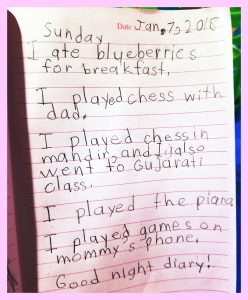 Sunday
Date Jan, 7, 2018
I ate blueberries
for breakfast.
I played chess with
dad.
I played chess in
mandir, and I also
went to Gujarati
class.
I played the piano
I played games on
mommy's phone.
Good night diary!